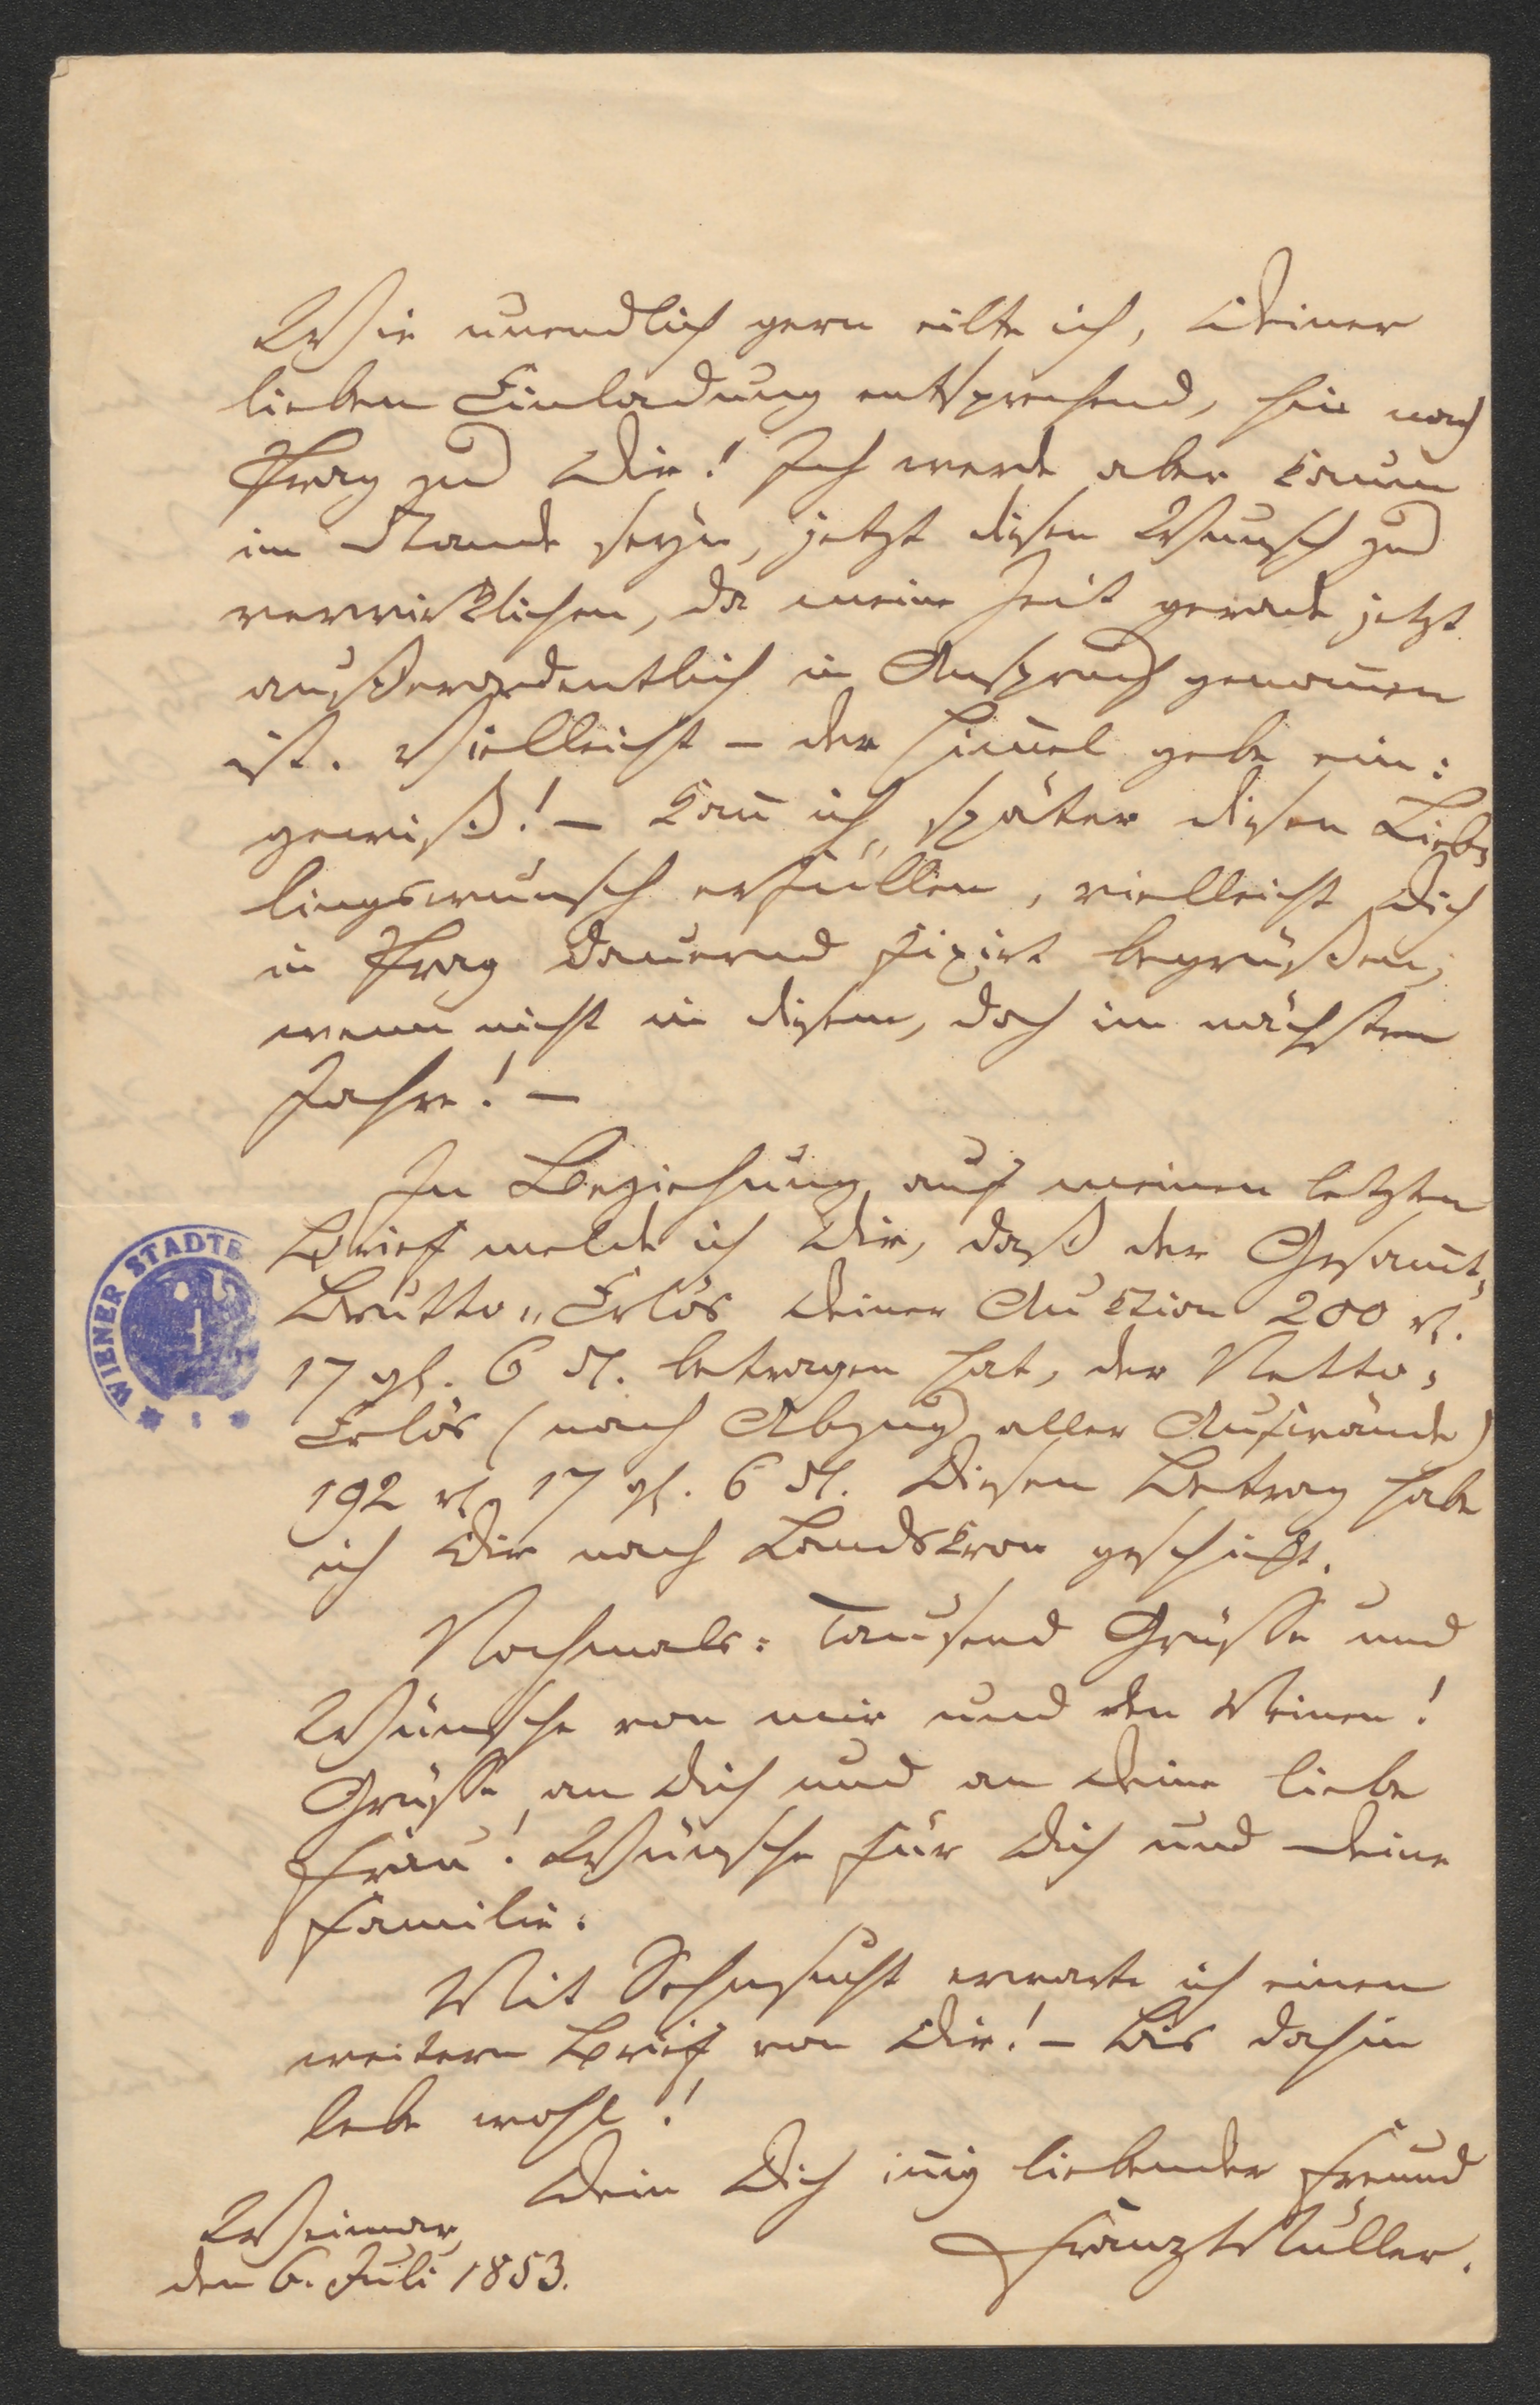 Wie unendlich gern eilte ich, Deiner
lieben Einladung entsprechend, hin nach
Prag zu Dir! Ich werde aber kaum
im Stande seyn, jetzt diesen Wunsch zu
verwirklichen, da meine Zeit gerade jetzt
außerordentlich in Anspruch genom̅en
ist. Vielleicht – der Him̅el gebe ein:
gewiß! – kan̅ ich später diesen Lieb=
lingswunsch erfüllen, vielleicht Dich
in Prag dauernd fixirt begrüßen,
wenn nicht in diesem, doch im nächsten
Jahre! –
In Beziehung auf meinen letzten
Brief melde ich Dir, daß der Gesam̅t=
Brutto=Erlös Deiner Auktion 200 rℓ.
17 gl. 6 ₰. betragen hat, der Netto=
Erlös (nach Abzug aller Aufwände)
192 rℓ 17 gl. 6 ₰. Diesen Betrag habe
ich Dir nach Landskron geschickt.
Nochmals: Tausend Grüsse und
Wünsche von mir und den Meinen!
Grüsse an Dich und an Deine liebe
Frau! Wünsche für Dich und Deine
Familie.
Mit Sehnsucht erwarte ich einen
weitern Brief von Dir! – Bis dahin
lebe wohl!
Dein Dich in̅ig liebender Freund
Franz Müller.
Weimar,
den 6. Juli 1853.
WIENER STADTB